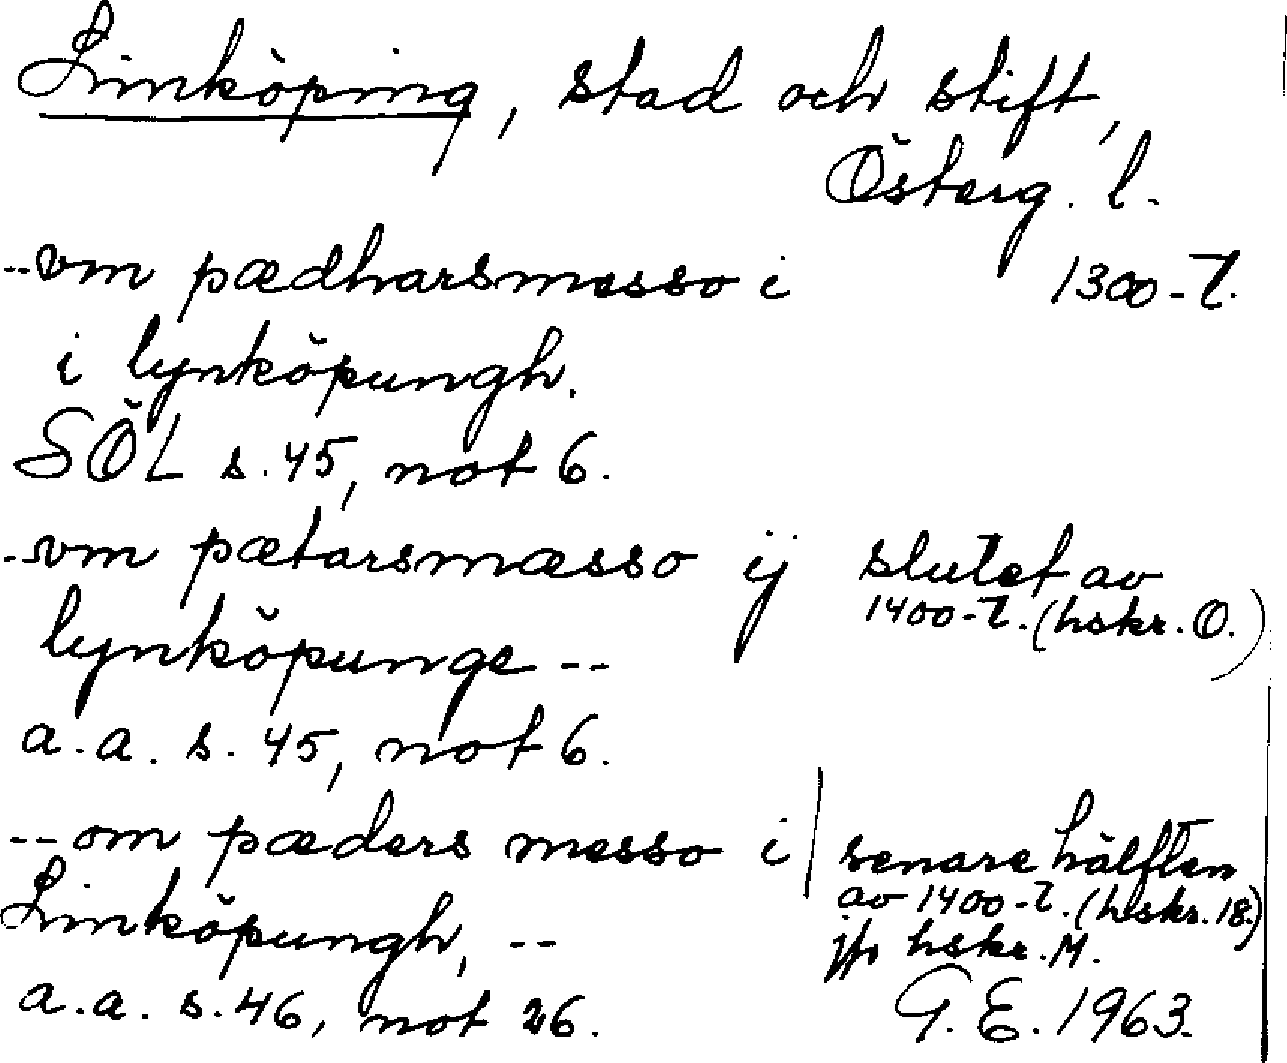 Linköping, stad och stift,
Österg. l.
--vm pædharsmesso i 1300-t.
i lynköpungh.
SÖL s. 45, not 6.
--vm pætarsmæsso ij slutet av
1400-t. (hskr. O.)
lynköpunge --
a.a. s. 45, not 6.
--om pæders messo i senare hälften
av 1400-t. (hskr. 18.)
Linköpungh, -- jfr hskr. M.
a.a. s. 46, not 26. G. E. 1963.